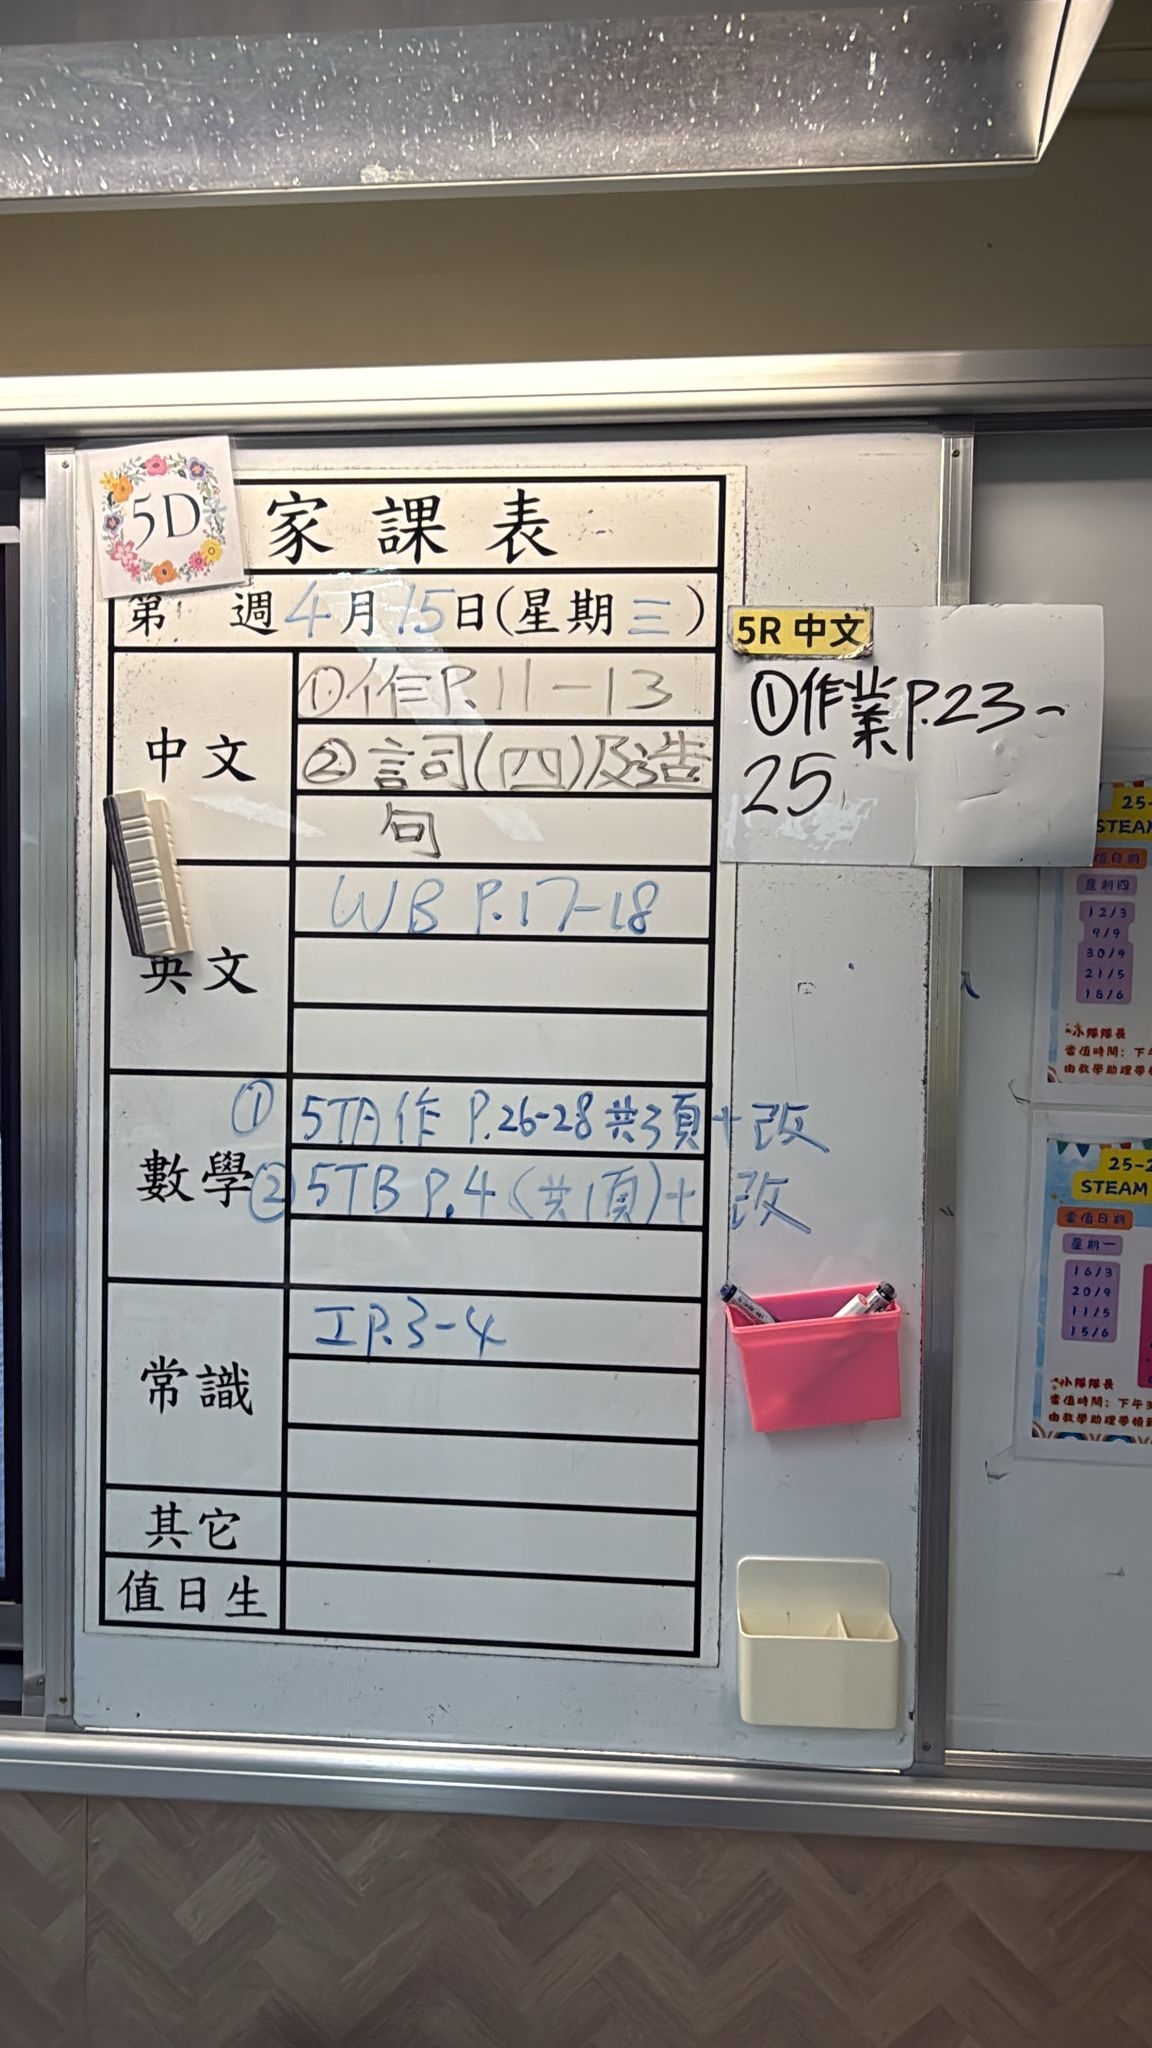 5D
家課表
第 週 4月15日(星期三)
中文
①作P.11-13
②詞(四)及造
句
英文
WB P.17-18
數學
① 5TA作 P.26-28 共3頁+改
② 5TB P.4 (共1頁)+改
常識
P.3-4
其它
值日生
5R 中文
①作業P.23~
25
25-
STEAM
值日期
星期四
12/3
9/4
30/4
21/5
18/6
小隊隊長
當值時間：下午
由教學助理帶領
25-2
STEAM
當值日期
星期一
16/3
20/4
11/5
15/6
小隊隊長
當值時間：下午3
由教學助理帶領